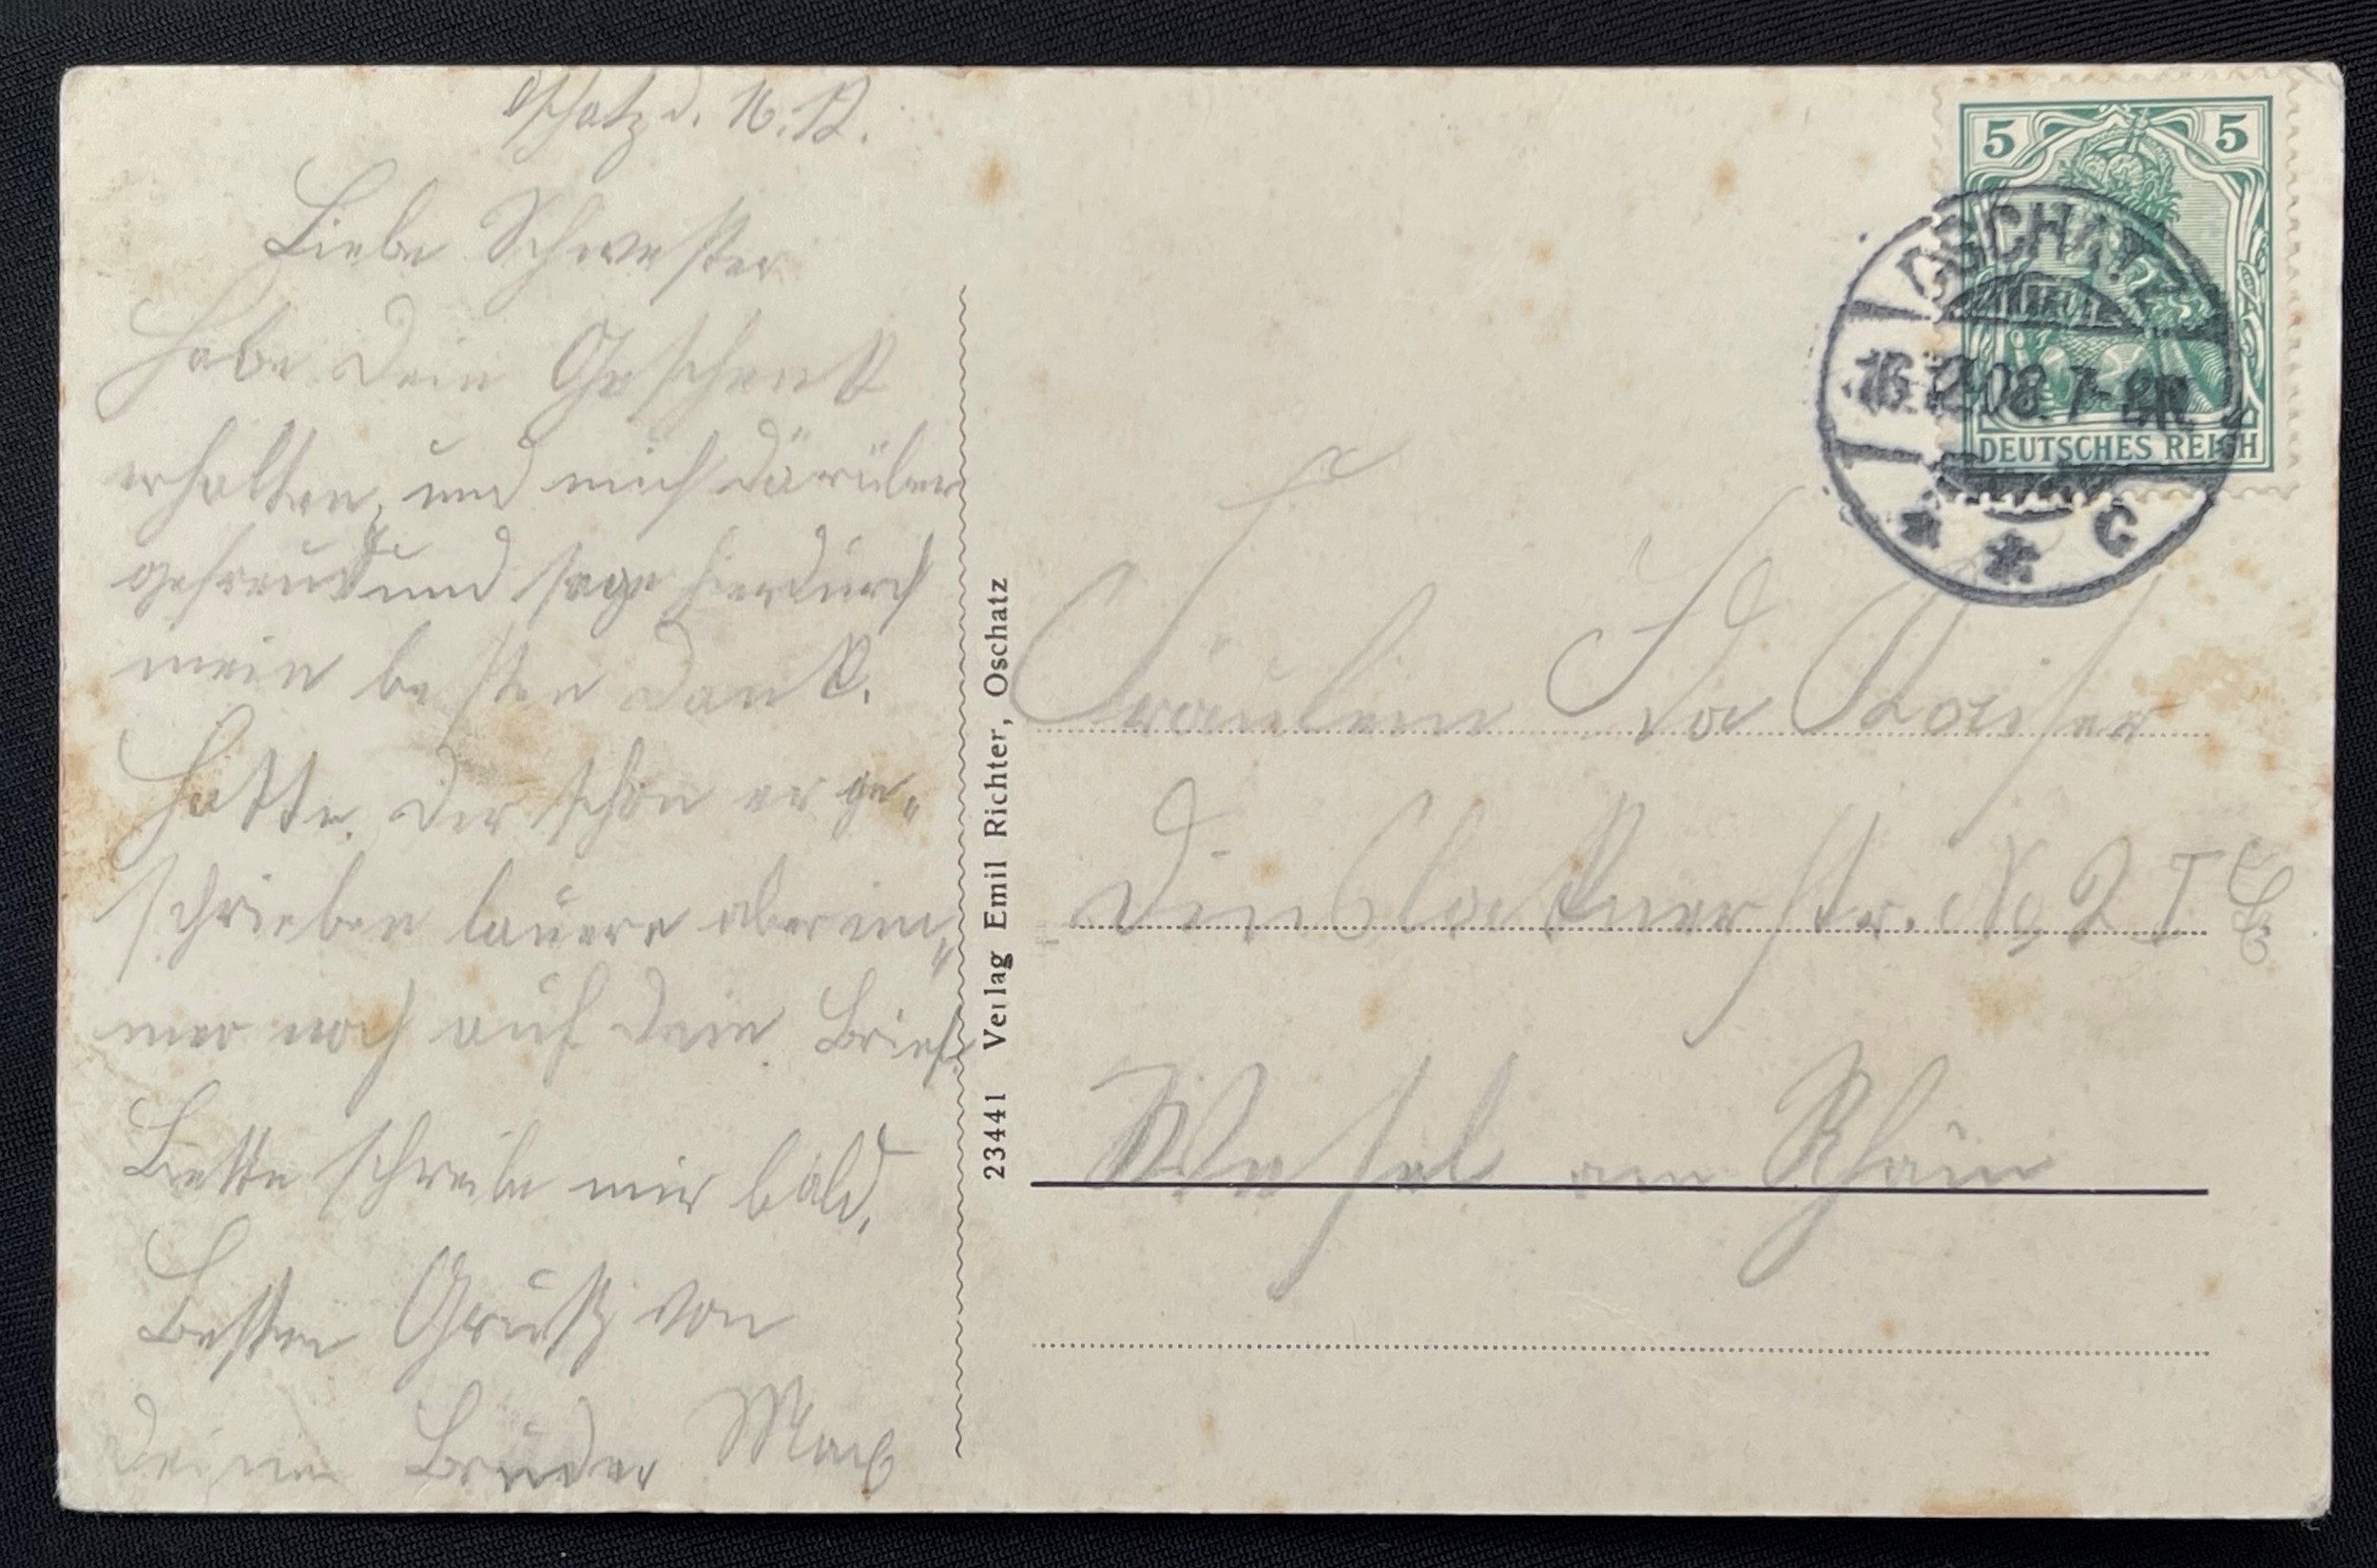 Oschatz d. 16.12.
Liebe Schwester
Habe dein Geschenk
erhalten, und mich darüber
gefreut und sage hierdurch
mein besten Dank.
Hatte dir schon er ge„
schrieben lauere aber im„
mer noch auf dein Brief
Bitte schreibe mir bald.
Besten Gruß von
deinen Bruder Max
23441 Verlag Emil Richter, Oschatz
5 5
DEUTSCHES REICH
OSCHATZ
16.12.08.7-8N.
* * c
Fräulein Ida Kaiser
Dinslaknerstr. No 2 I
Wesel am Rhein